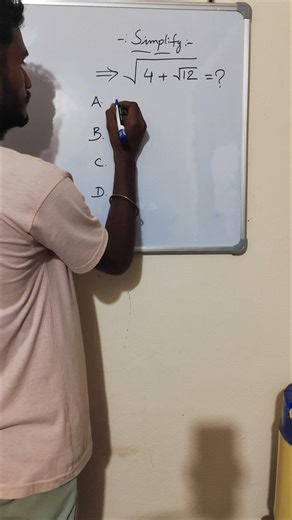 -: Simplify :-
⇒ √(4 + √12) = ?
A.
B.
C.
D.